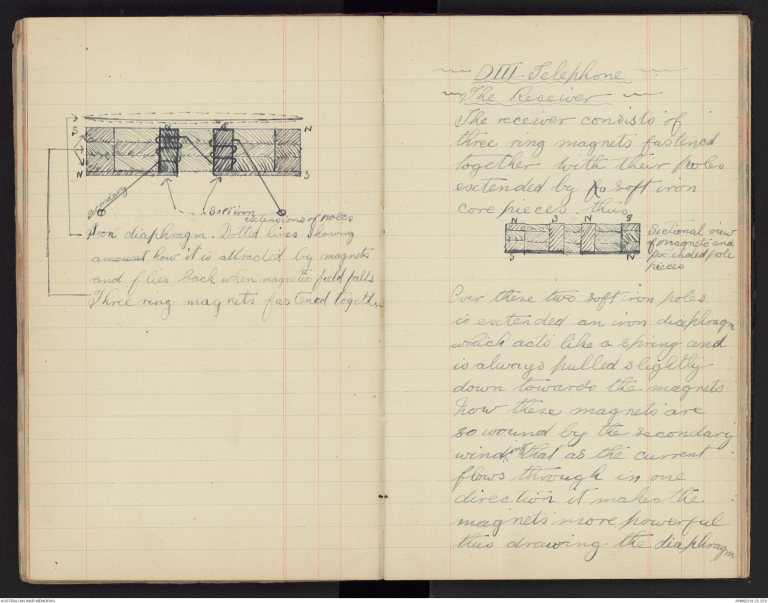 S
N
N
S
S
N
secondary
Soft iron
extensions of poles
Iron diaphragm. Dotted lines showing
amount how it is attracted by magnets
and flies back when magnetic field falls
Three ring magnets fastened together
DIII. Telephone
The Receiver
The receiver consists of
three ring magnets fastened
together with their poles
esctended by to soft iron
core pieces. thus
N
S
N
S
S
N
Sectional view
of magnets and
esctended pole
pieces
Over these two soft iron poles
is esctended an iron diaphragm
which acts like a spring and
is always pulled slightly
down towards the magnets
Now these magnets are
so wound by the secondary
winding that as the current
flows through in one
direction it makes the
magnets more powerful
thus drawing the diaphragm
AUSTRALIAN WAR MEMORIAL